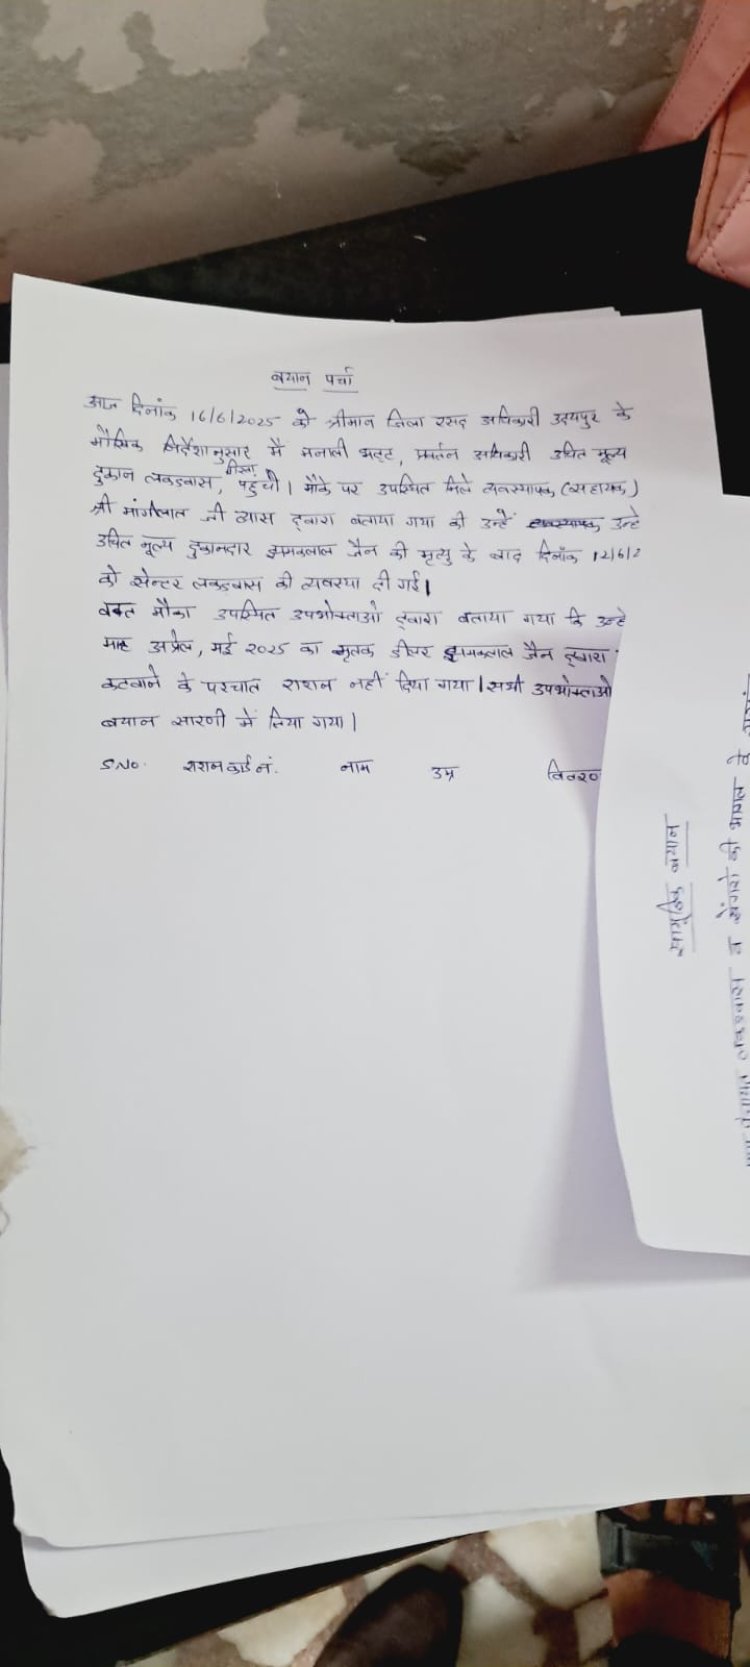 बयान पर्चा
आज दिनांक 16/6/2025 को श्रीमान जिला रसद अधिकारी उदयपुर के
मौखिक निर्देशानुसार मैं मनाली भट्ट, प्रवर्तन अधिकारी उचित मूल्य
दुकान लकडवास, पहुंची। मौके पर उपस्थित मिले व्यवस्थापक (सहायक)
श्री मांगीलाल जी व्यास द्वारा बताया गया की उन्हें व्यवस्थापक उन्हे
उचित मूल्य दुकानदार झमकलाल जैन की मृत्यु के बाद दिनांक 12/6/2
को सेन्टर लकडवास की व्यवस्था दी गई।
वक्त मौका उपस्थित उपभोक्ताओ द्वारा बताया गया कि उन्हे
माह अप्रेल, मई 2025 का मृतक डीलर झमकलाल जैन द्वारा
कटवाने के पश्चात राशन नहीं दिया गया। सभी उपभोक्ताओ
बयान सारणी में लिया गया।
S.No. राशनकार्ड नं. नाम उम्र विवरण
सामूहिक बयान
लकडवास व की